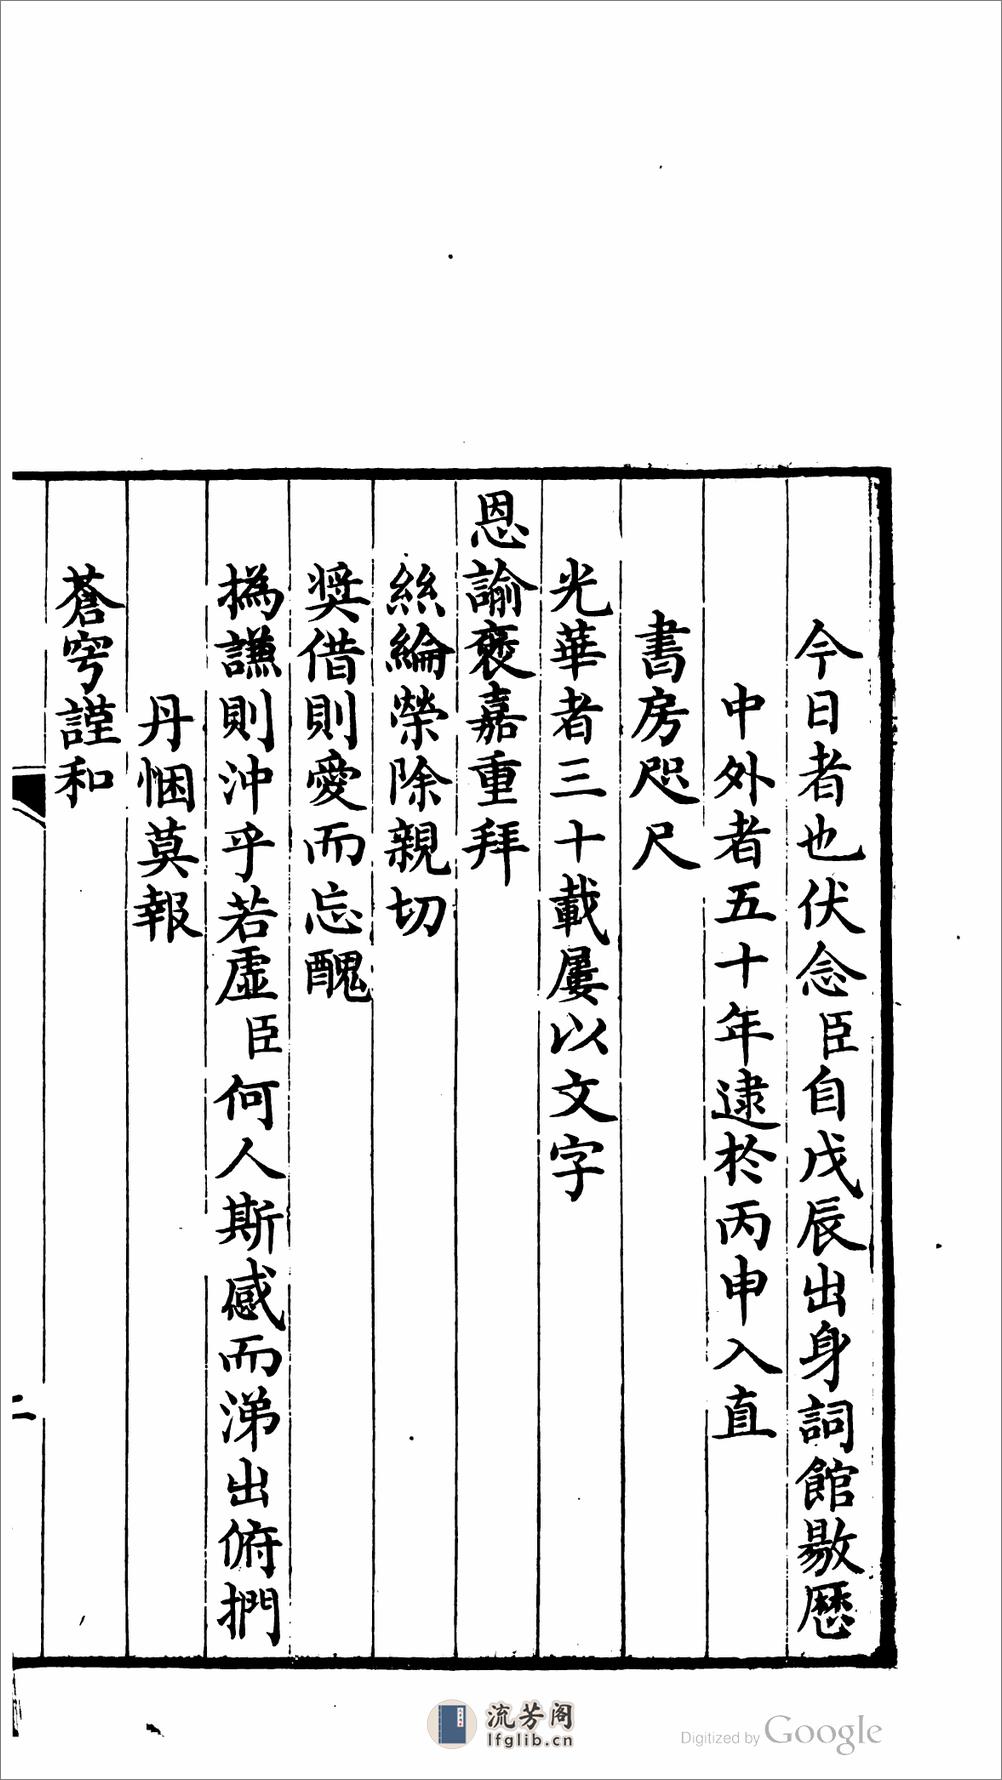 今日者也伏念臣自戊辰出身詞館敭歷
中外者五十年逮於丙申入直
書房咫尺
光華者三十載屢以文字
恩諭褒嘉重拜
絲綸榮除親切
奬借則愛而忘醜
撝謙則沖乎若虛臣何人斯感而涕出俯捫
丹悃莫報
蒼穹謹和
二
流芳阁
lfglib.cn
Digitized by Google